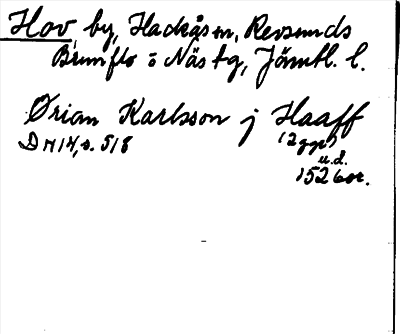 Hov, by, Hackås sn, Revsunds
Brunflo o Näs tg, Jämtl. l.
Ørian Karlsson j Haaff
(2 ggr)
DN 14, s. 518
u.d.
1526 or.